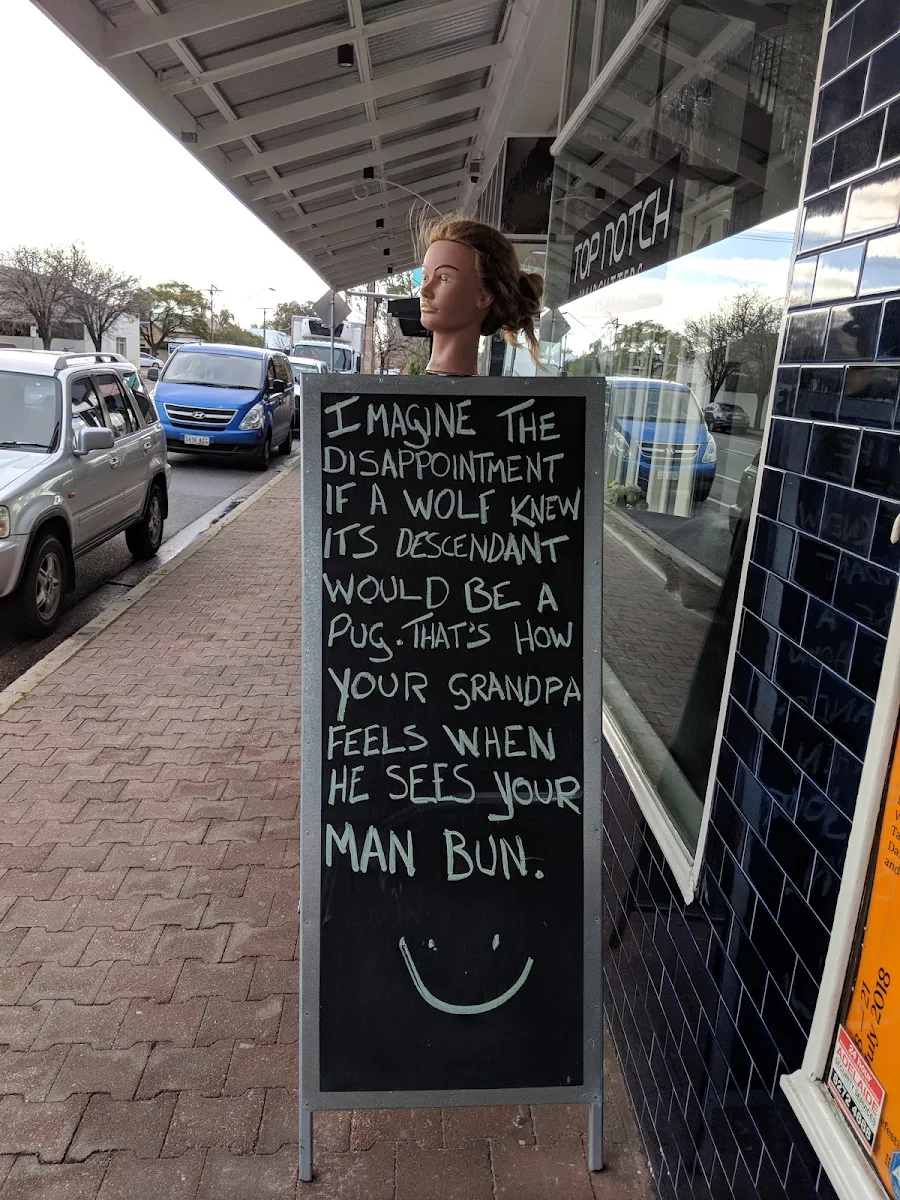 TOP NOTCH
IMAGINE THE
DISAPPOINTMENT
IF A WOLF KNEW
ITS DESCENDANT
WOULD BE A
PUG. THAT'S HOW
YOUR GRANDPA
FEELS WHEN
HE SEES YOUR
MAN BUN.
July 2018
24 HOUR
ADELAIDE